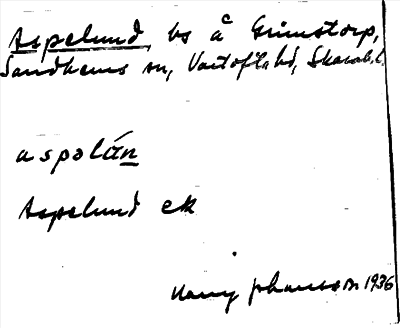 Aspelund, bs å Grimstorp,
Sandhems sn, Vartofta hd, Skarab.l.
aspəlán
Aspelund ek
Harry Johansson 1936